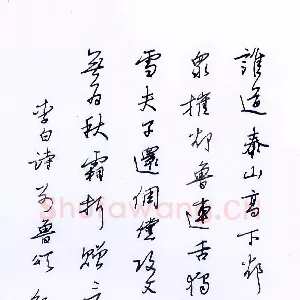 誰道泰山高下卻
衆摧卻魯連舌獨
雪夫子還倜儻攻文
無為秋霜折贈言
李白詩別魯頌
shufawang.cn